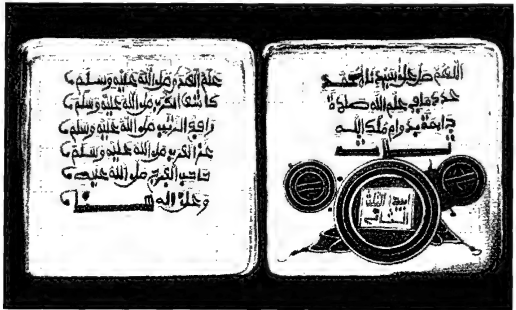 اللهم صل على سيدنا محمد
عدد ما في علم الله صلاة
دائمة بدوام ملك الله
الثلث
الثاني
علم الهدى صلى الله عليه وسلم
كاشف الكرب صلى الله عليه وسلم
رافع الرتب صلى الله عليه وسلم
عز العرب صلى الله عليه وسلم
صاحب الفرج صلى الله عليه
وعلى اله